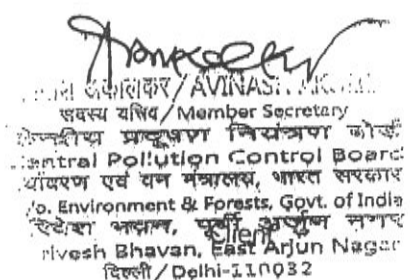 / AVINASH
सदस्य सचिव / Member Secretary
केन्द्रीय प्रदूषण नियंत्रण बोर्ड
entral Pollution Control Board
एवं वन मंत्रालय, भारत सरकार
/o. Environment & Forests, Govt. of India
भवन, पूर्वी अर्जुन नगर
Client
rivesh Bhavan, East Arjun Nagar
दिल्ली / Delhi-110032